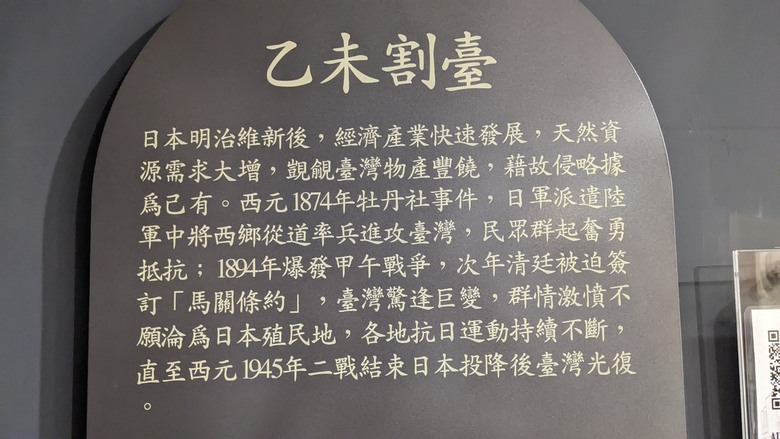 乙未割臺
日本明治維新後，經濟產業快速發展，天然資
源需求大增，覬覦臺灣物產豐饒，藉故侵略據
為己有。西元1874年牡丹社事件，日軍派遣陸
軍中將西鄉從道率兵進攻臺灣，民眾群起奮勇
抵抗；1894年爆發甲午戰爭，次年清廷被迫簽
訂「馬關條約」，臺灣驚逢巨變，群情激憤不
願淪為日本殖民地，各地抗日運動持續不斷，
直至西元1945年二戰結束日本投降後臺灣光復
。